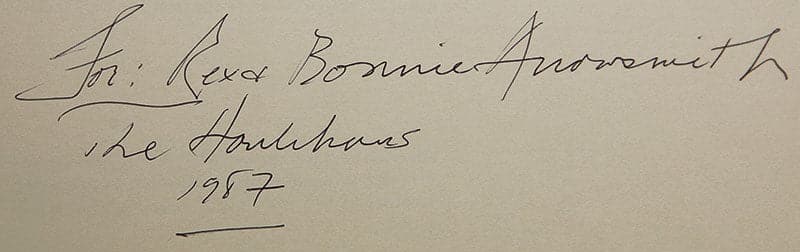 For: Rex & Bonnie Arrowsmith
The Houlihans
1987